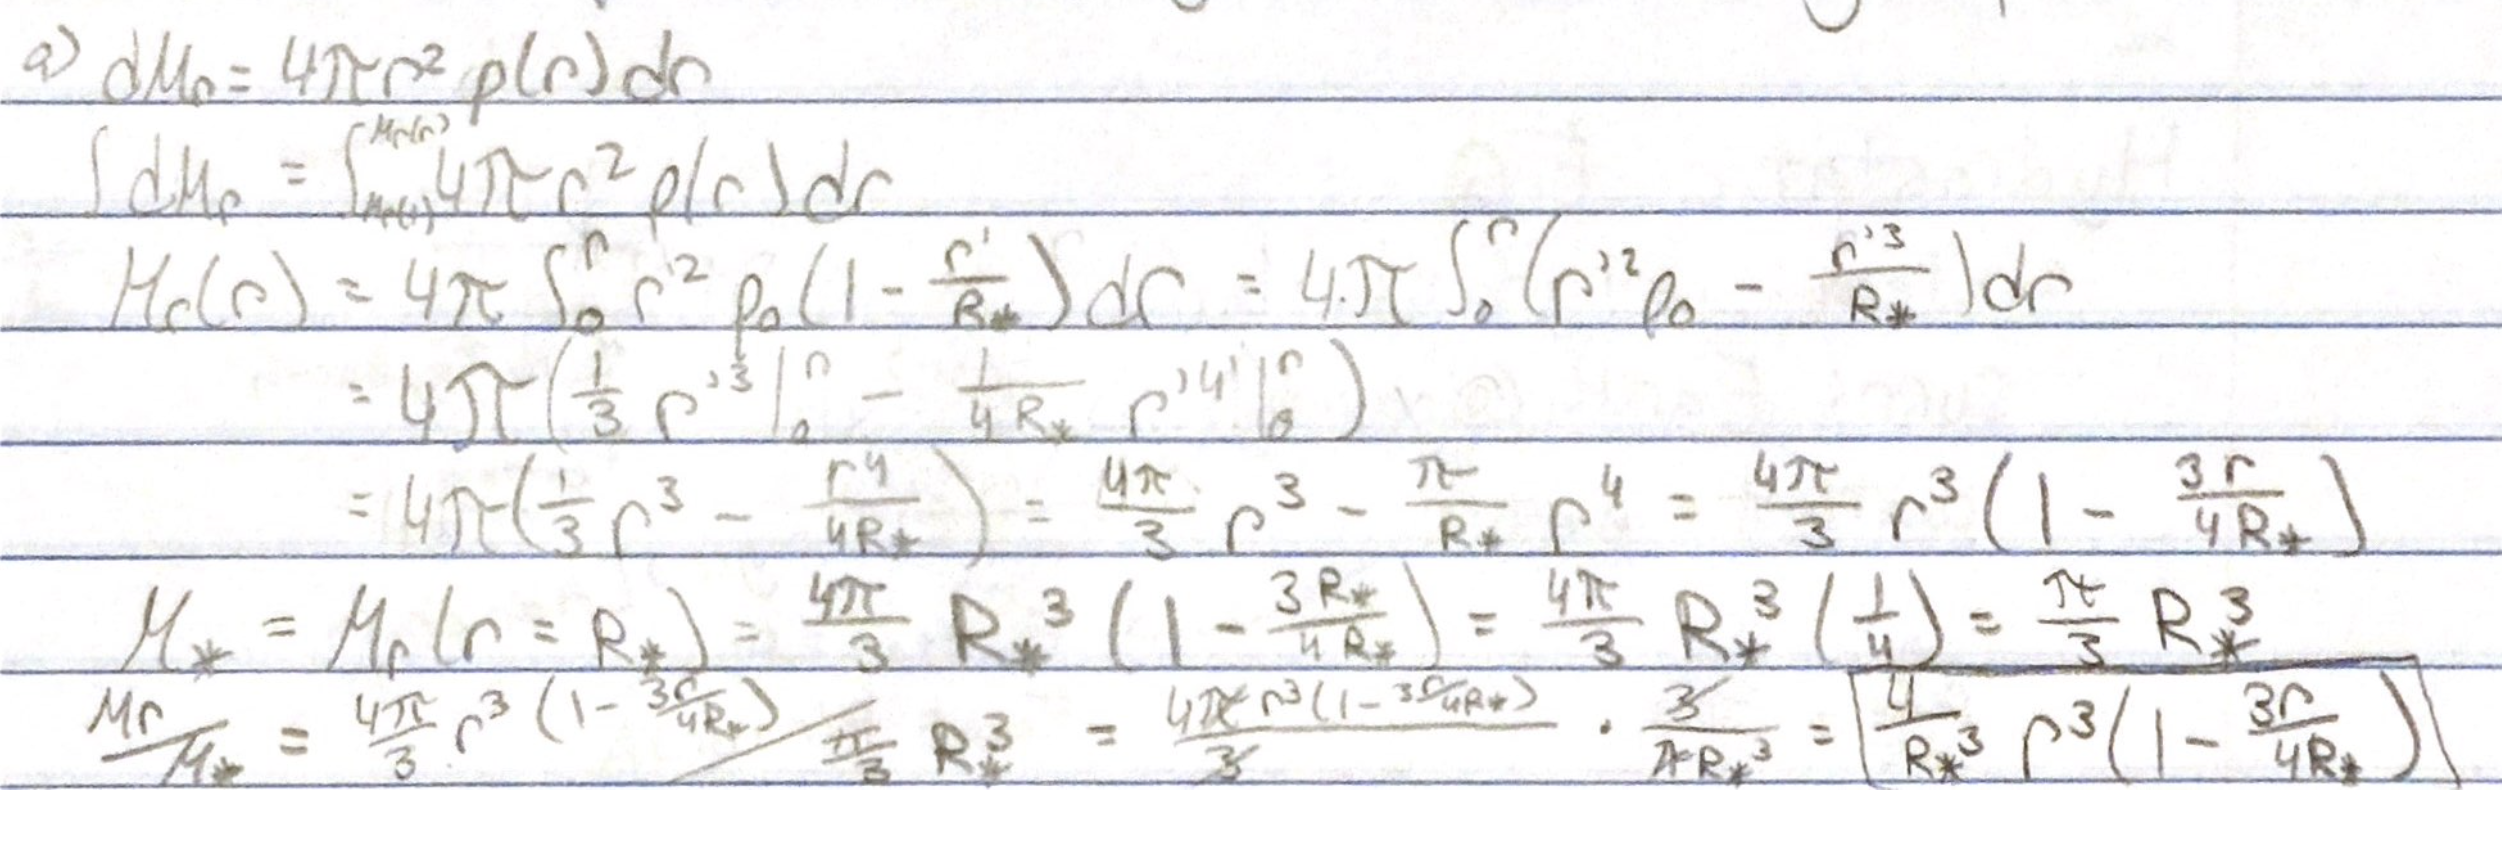 a) dMr = 4πr² ρ(r) dr
∫dMr = ∫_{Mr(r)}^{Mr(r)} 4πr² ρ(r) dr
Mr(r) = 4π ∫₀ʳ r'² ρ₀ (1 - r'/R*) dr = 4π ∫₀ʳ (r'²ρ₀ - r'³/R*) dr
= 4π (1/3 r'³|₀ʳ - 1/(4R*) r'⁴|₀ʳ)
= 4π (1/3 r³ - r⁴/(4R*)) = 4π/3 r³ - π/R* r⁴ = 4π/3 r³ (1 - 3r/(4R*))
M* = Mr (r = R*) = 4π/3 R*³ (1 - 3R*/(4R*)) = 4π/3 R*³ (1/4) = π/3 R*³
Mr/M* = 4π/3 r³ (1 - 3r/4R*) / π/3 R*³ = 4π r³ (1 - 3r/4R*)/3 · 3/(πR*³) = 4/R*³ r³ (1 - 3r/(4R*))